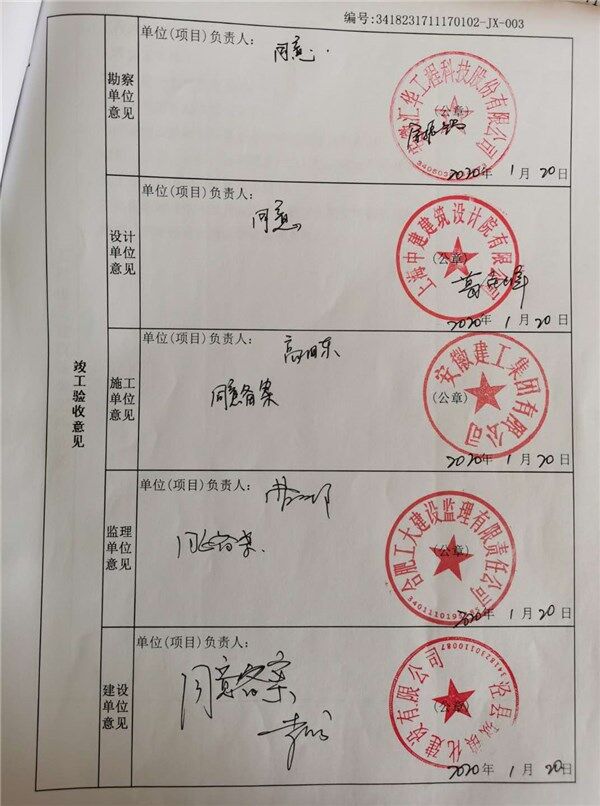 编号:3418231711170102-JX-003
竣工验收意见
勘察
单位
意见
单位(项目)负责人:
同意.
汇华工程科技股份有限公司
(公章)
2020年1月20日
设计
单位
意见
单位(项目)负责人:
同意
上海中建建筑设计院有限公司
(公章)
2020年1月20日
施工
单位
意见
单位(项目)负责人:
同意备案
安徽建工集团有限公司
(公章)
2020年1月20日
监理
单位
意见
单位(项目)负责人:
同意备案.
合肥工大建设监理有限责任公司
(公章)
2020年1月20日
建设
单位
意见
单位(项目)负责人:
同意备案
泾县城镇化建设有限公司
3418230110087
(公章)
2020年1月20日